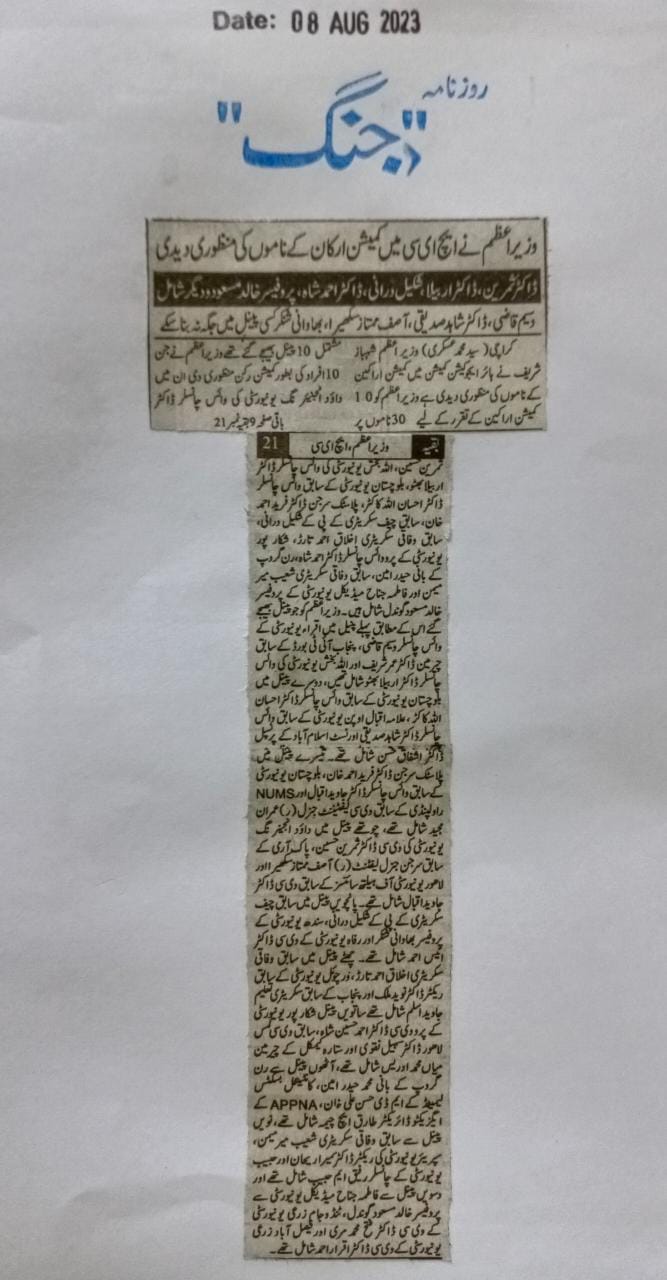 Date: 08 AUG 2023
روزنامہ
"جنگ"
وزیراعظم نے ایچ ای سی میں کمیشن ارکان کے ناموں کی منظوری دیدی
ڈاکٹر ثمرین، ڈاکٹر اربیلا، شکیل درانی، ڈاکٹر احمد شاہ، پروفیسر خالد مسعود و دیگر شامل
وسیم قاضی، ڈاکٹر شاہد صدیقی، آصف ممتاز سکھیرا، بھاوانی شنکر کسی پینل میں جگہ نہ بنا سکے
کراچی (سید محمد عسکری) وزیراعظم شہباز
شریف نے ہائر ایجوکیشن کمیشن میں کمیشن اراکین
کے ناموں کی منظوری دیدی ہے وزیراعظم کو 10
کمیشن اراکین کے تقرر کے لیے 30 ناموں پر
مشتمل 10 پینل بھیجے گئے تھے وزیراعظم نے جن
10 افراد کی بطور کمیشن رکن منظوری دی ان میں
داؤد انجینئرنگ یونیورسٹی کی وائس چانسلر ڈاکٹر
باقی صفحہ 9 بقیہ نمبر 21
بقیہ وزیراعظم، ایچ ای سی 21
ثمرین حسین، اللہ بخش یونیورسٹی کی وائس چانسلر ڈاکٹر
اربیلا بھٹو، بلوچستان یونیورسٹی کے سابق وائس چانسلر
ڈاکٹر احسان اللہ کاکڑ، پلاسٹک سرجن ڈاکٹر فرید احمد
خان، سابق چیف سکریٹری کے پی کے شکیل درانی،
سابق وفاقی سکریٹری اخلاق احمد تارڑ، شکار پور
یونیورسٹی کے پرو وائس چانسلر ڈاکٹر احمد شاہ، رن گروپ
کے بانی حیدر امین، سابق وفاقی سکریٹری شعیب میر
میمن اور فاطمہ جناح میڈیکل یونیورسٹی کے پروفیسر
خالد مسعود گوندل شامل ہیں۔ وزیراعظم کو جو پینل بھیجے
گئے اس کے مطابق پہلے پینل میں اقراء یونیورسٹی کے
وائس چانسلر وسیم قاضی، پنجاب آئی ٹی بورڈ کے سابق
چیرمین ڈاکٹر عمر شریف اور اللہ بخش یونیورسٹی کی وائس
چانسلر ڈاکٹر اربیلا بھٹو شامل تھیں، دوسرے پینل میں
بلوچستان یونیورسٹی کے سابق وائس چانسلر ڈاکٹر احسان
اللہ کاکڑ، علامہ اقبال اوپن یونیورسٹی کے سابق وائس
چانسلر ڈاکٹر شاہد صدیقی اور نسٹ اسلام آباد کے پرنسپل
ڈاکٹر اشفاق حسن شامل تھے۔ تیسرے پینل میں
پلاسٹک سرجن ڈاکٹر فرید احمد خان، بلوچستان یونیورسٹی
کے سابق وائس چانسلر ڈاکٹر جاوید اقبال اور NUMS
راولپنڈی کے سابق وی سی لیفٹیننٹ جنرل (ر) عمران
مجید شامل تھے، چوتھے پینل میں داؤد انجینئرنگ
یونیورسٹی کی وی سی ڈاکٹر ثمرین حسین، پاک آرمی کے
سابق سرجن جنرل لیفٹننٹ (ر) آصف ممتاز سکھیرا اور
لاہور یونیورسٹی آف ہیلتھ سائنسز کے سابق وی سی ڈاکٹر
جاوید اقبال شامل تھے۔ پانچویں پینل میں سابق چیف
سکریٹری کے پی کے شکیل درانی، سندھ یونیورسٹی کے
پروفیسر بھاوانی شنکر اور رفاہ یونیورسٹی کے وی سی ڈاکٹر
انیس احمد شامل تھے۔ چھٹے پینل میں سابق وفاقی
سکریٹری اخلاق احمد تارڑ، ورچوئل یونیورسٹی کے سابق
ریکٹر ڈاکٹر نوید ملک اور پنجاب کے سابق سکریٹری تعلیم
جاوید اسلم شامل تھے ساتویں پینل شکار پور یونیورسٹی
کے پرو وی سی ڈاکٹر احمد حسین شاہ، سابق وی سی لمس
لاہور ڈاکٹر سہیل نقوی اور ستارہ کیمیکل کے چیرمین
میاں محمد ادریس شامل تھے، آٹھویں پینل سے رن
گروپ کے بانی محمد حیدر امین، کانٹیننٹل بسکٹس
لمیٹیڈ کے ایم ڈی حسن علی خان، APPNA کے
ایگزیکٹو ڈائریکٹر طارق ایچ چیمہ شامل تھے، نویں
پینل سے سابق وفاقی سکریٹری شعیب میر میمن،
سپیریئر یونیورسٹی کی ریکٹر ڈاکٹر سمیرا رحمان اور حبیب
یونیورسٹی کے چانسلر رفیق ایم حبیب شامل تھے اور
دسویں پینل سے فاطمہ جناح میڈیکل یونیورسٹی سے
پروفیسر خالد مسعود گوندل، ٹنڈو جام زرعی یونیورسٹی
کے وی سی ڈاکٹر فتح محمد مری اور فیصل آباد زرعی
یونیورسٹی کے وی سی ڈاکٹر اقرار احمد شامل تھے۔